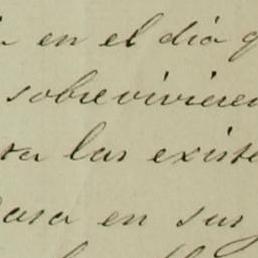 en el dia q
sobrevivieren
sta las existe
Casa en sus